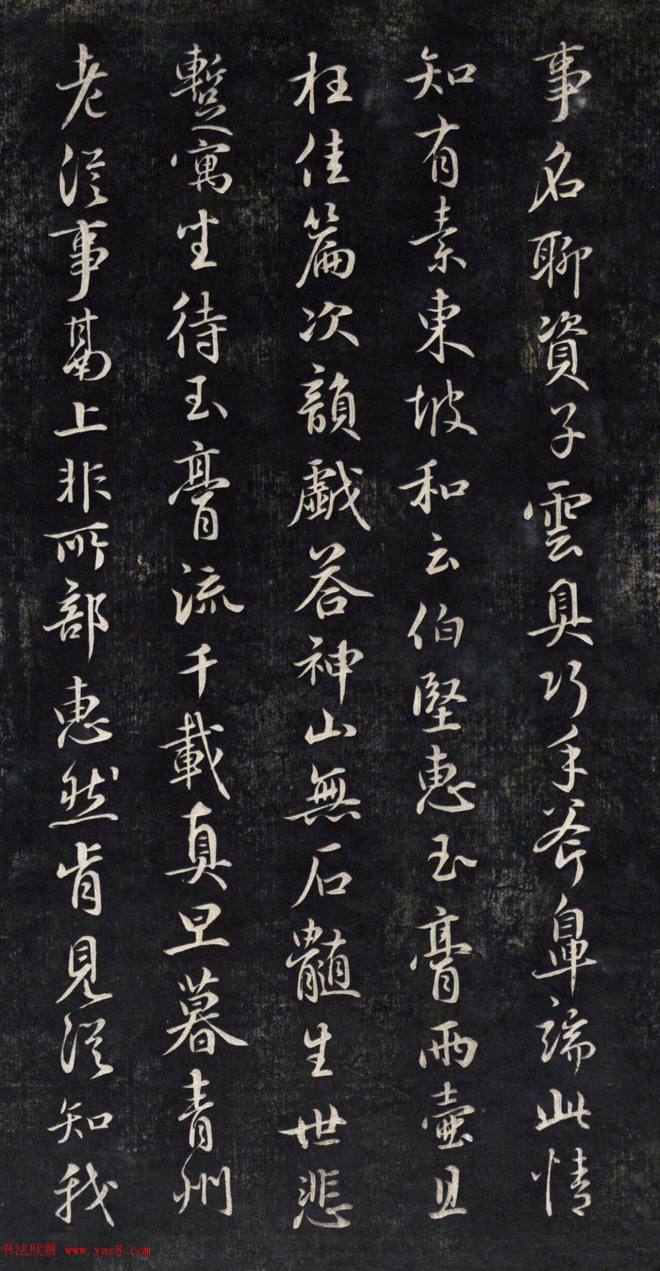 事名聊資子雲具巧手斧鼻端此情
知有素東坡和云伯堅惠玉膏兩壺且
枉佳篇次韻戲答神山無石髓生世悲
暫寓坐待玉膏流千載真旦暮青州
老從事鬲上非所部惠然肯見從知我
书法欣赏 www.yac8.com